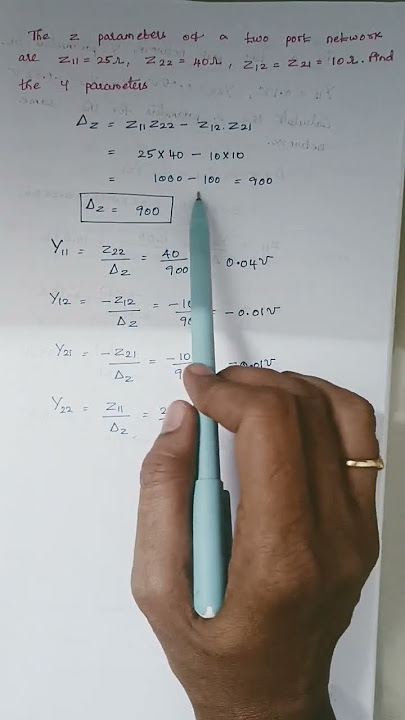 The z parameters of a two port network
are Z11 = 25Ω, Z22 = 40Ω, Z12 = Z21 = 10Ω. Find
the Y parameters
Δz = Z11 Z22 − Z12. Z21
= 25 × 40 − 10 × 10
= 1000 − 100 = 900
Δz = 900
Y11 = Z22/Δz = 40/900 0.04℧
Y12 = −Z12/Δz = = −0.01℧
Y21 = −Z21/Δz = −0.01℧
Y22 = Z11/Δz =